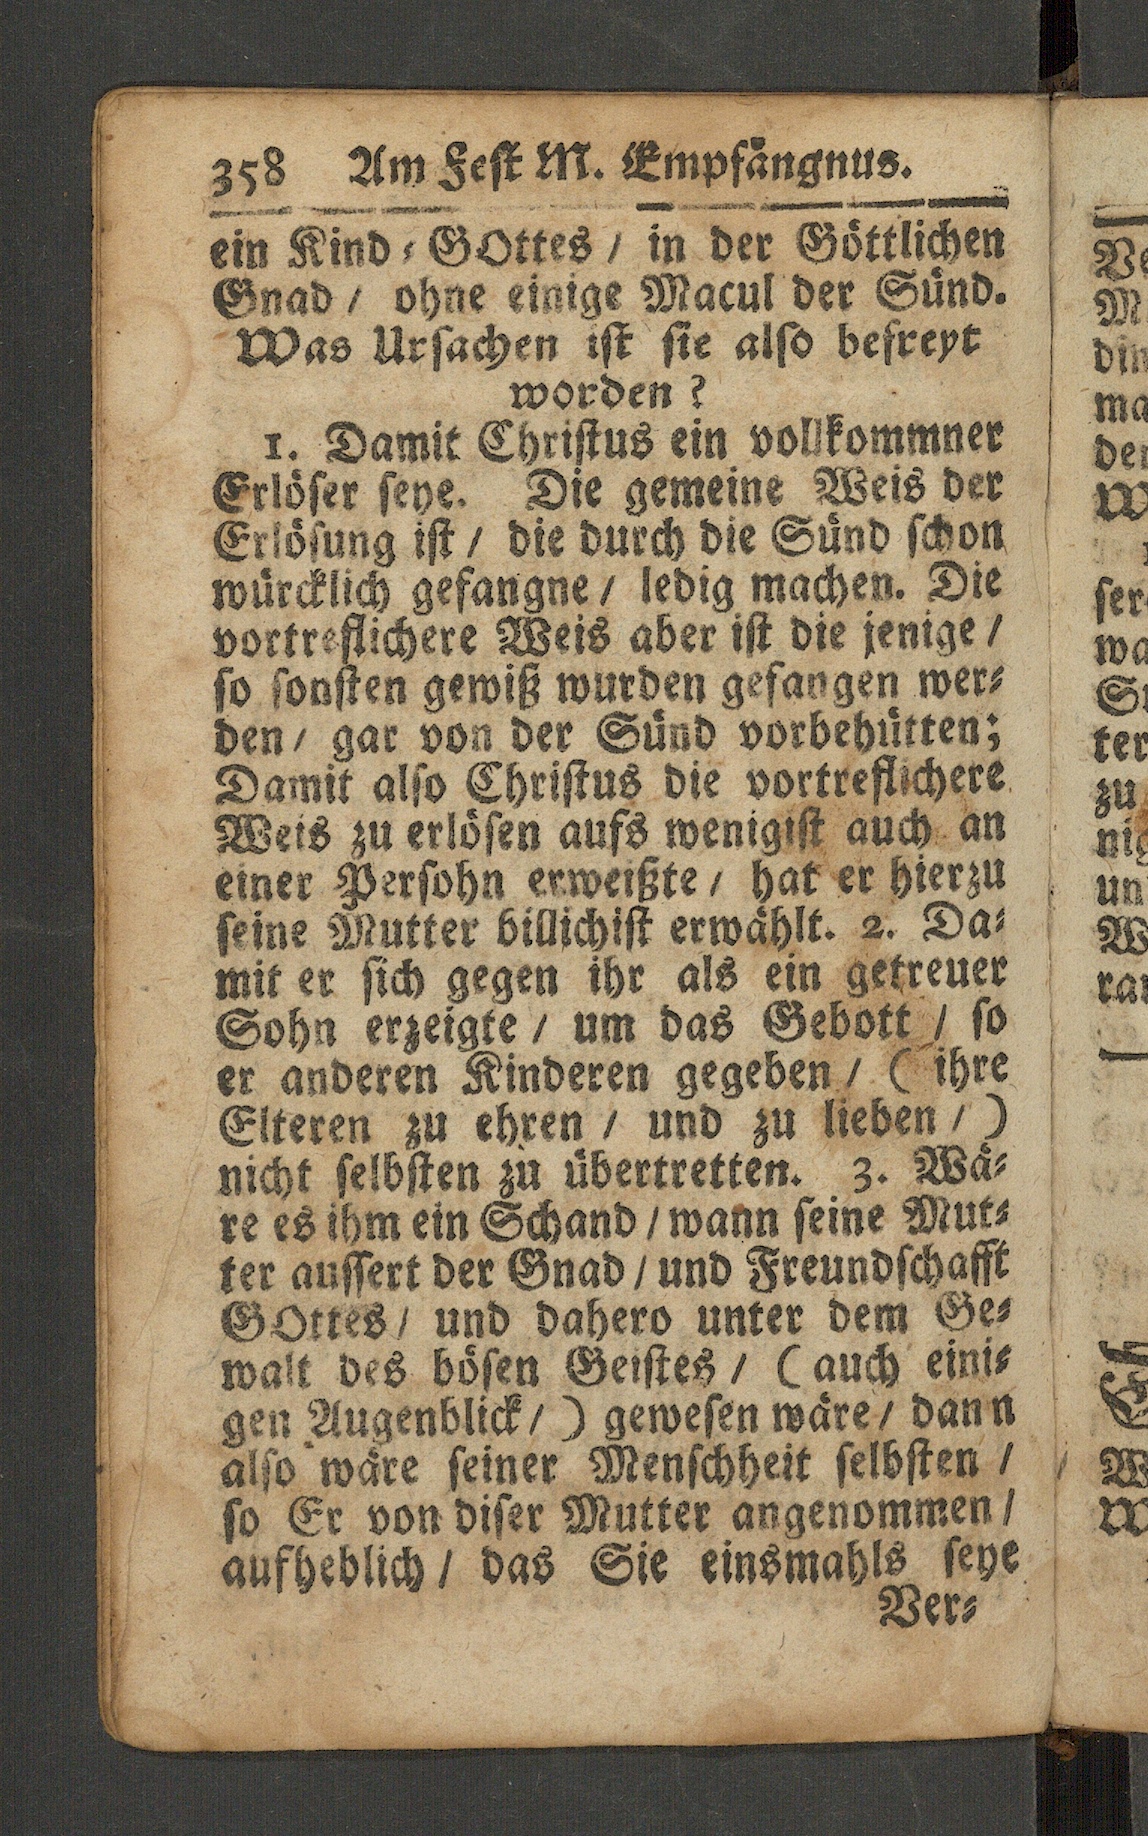 358 Am Fest M. Empfängnus.
ein Kind-GOttes / in der Göttlichen
Gnad / ohne einige Macul der Sünd.
Was Ursachen ist sie also befreyt
worden?
1. Damit Christus ein vollkommner
Erlöser seye. Die gemeine Weis der
Erlösung ist / die durch die Sünd schon
würcklich gefangne / ledig machen. Die
vortreflichere Weis aber ist die jenige /
so sonsten gewiß wurden gefangen wer-
den / gar von der Sünd vorbehütten;
Damit also Christus die vortreflichere
Weis zu erlösen aufs wenigist auch an
einer Persohn erweißte / hat er hierzu
seine Mutter billichist erwählt. 2. Da-
mit er sich gegen ihr als ein getreuer
Sohn erzeigte / um das Gebott / so
er anderen Kinderen gegeben / ( ihre
Elteren zu ehren / und zu lieben / )
nicht selbsten zu übertretten. 3. Wä-
re es ihm ein Schand / wann seine Mut-
ter aussert der Gnad / und Freundschafft
GOttes / und dahero unter dem Ge-
walt des bösen Geistes / ( auch eini-
gen Augenblick / ) gewesen wäre / dann
also wäre seiner Menschheit selbsten /
so Er von diser Mutter angenommen /
aufheblich / das Sie einsmahls seye
Ver-